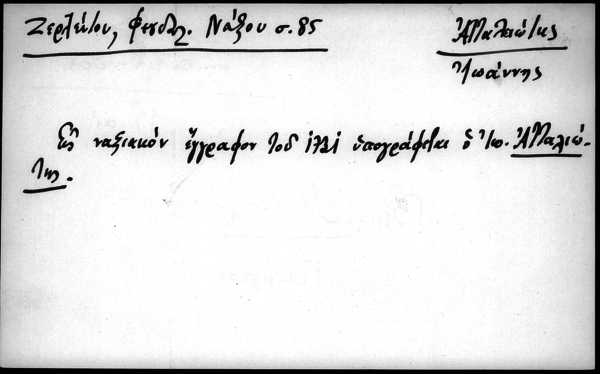 Ζερλέντου, Φεουδαλ. Νάξου σ. 85
Ἀπαλειώτης
Ἰωάννης
Εἰς ναξιακόν ἔγγραφον τοῦ 1721 ὑπογράφεται ὁ Ἰω. Ἀπαλιώ-
της.